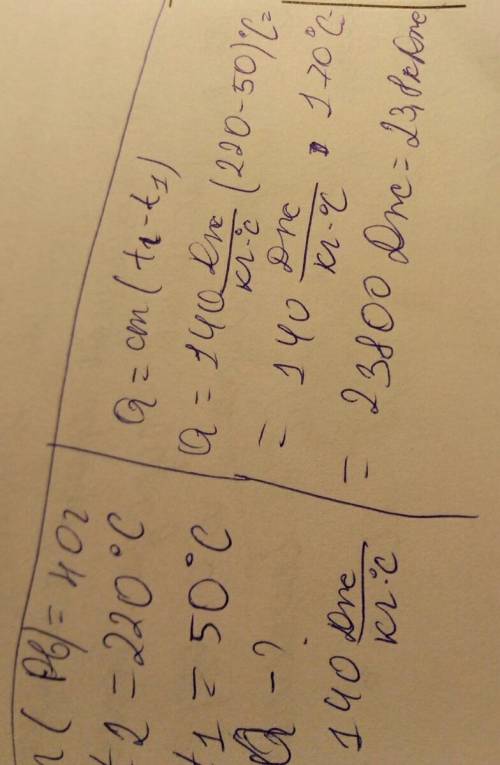 m(Pb) = 40г
t2 = 220°C
t1 = 50°C
Q - ?
140 Дж/кг·°C
Q = cm(t2 - t1)
Q = 140 Дж/кг·°C (220 - 50)°C =
= 140 Дж/кг·°C · 170°C
= 23800 Дж = 23,8 кДж